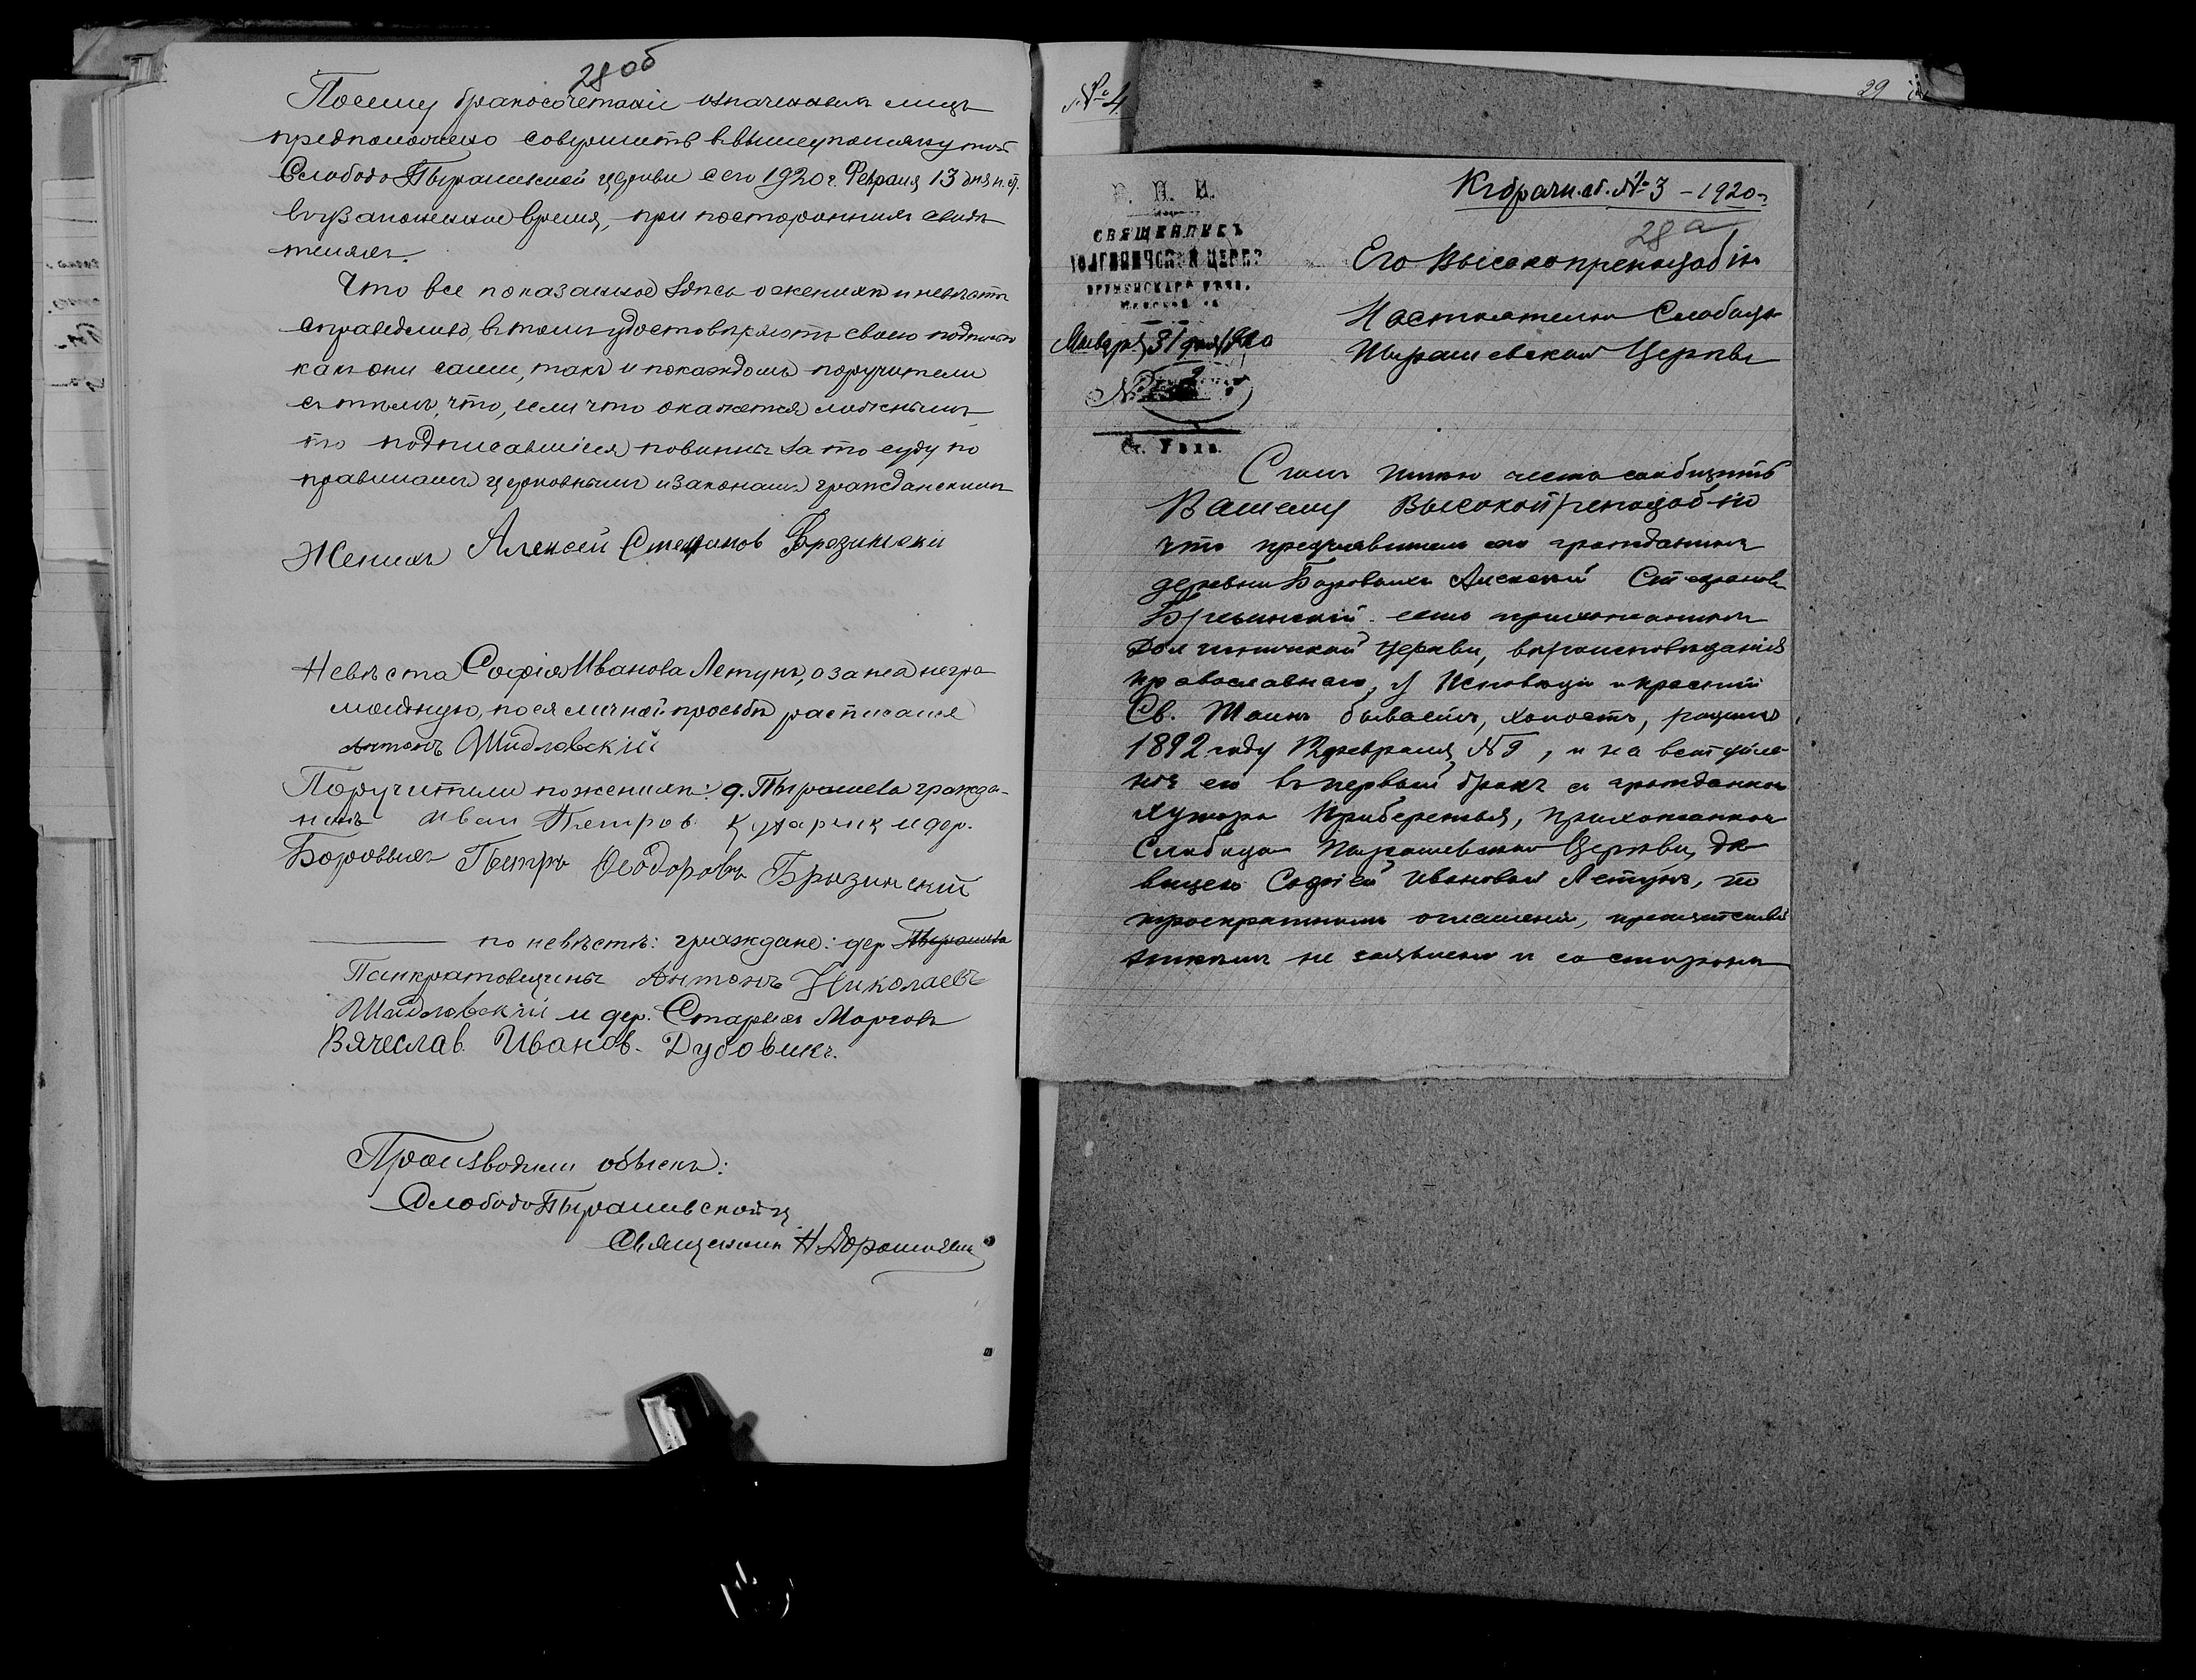 28 об
Посему бракосочетаніе означенныхъ лицъ
предположено совершить въ вышеупомянутой
Слободо Пырашевской церкви сего 1920 г. Февраля 13 дня н. ст.
въ узаконенное время, при постороннихъ свидѣ
теляхъ.
Что все показанное здѣсь о женихѣ и невѣстѣ
справедливо, въ томъ удостовѣряютъ своею подписью
какъ они сами, такъ и по каждомъ поручители
съ тѣмъ, что, если что окажется ложнымъ,
то подписавшіеся повинны за то суду по
правиламъ церковнымъ и законамъ гражданскимъ
Женихъ Алексей Стефанов Брезински
Невѣста Софія Иванова Летунъ, а за нея негра
мотную, по ея личной просьбѣ расписался
Антонъ Шидловскій
Поручители по женихѣ: д. Пырашева гражда-
нинъ Иван Петров и дер.
Боровыхъ Петръ Ѳеодоровъ Брызинскій
по невѣстѣ: граждане: дер. Пырашева
Панкратовщины Антонъ Николаевъ
Шидловскій и дер. Старыхъ Морговъ
Вячеслав. Иванов. Дубовикъ.
Производили обыскъ:
Слободо Пырашевской ц.
Священник Н. Дорошкевич
№ 4
29
К брачн. об. № 3 - 1920 г.
28 а
СВЯЩЕННИКЪ
Января 31 дня 1920
№
Ст. Узла.
Его Высокопреподобію
Настоятелю Слободо
Пырашевской Церкви
Симъ имѣю честь сообщить
Вашему Высокопреподобію
что предъявитель сего гражданинъ
деревни Боровыхъ Алексѣй Стефановъ
Брезинскій есть прихожанинъ
Долгиничской Церкви, вѣроисповѣданія
православнаго, у Исповѣди и
Св. Таинъ бываетъ, холостъ, родился
1892 году февраля № 9, и на вступле-
ніе его въ первый бракъ съ гражданкой
хутора Прибережья, прихожанкой
Слободо Пырашевской Церкви, дѣ
вицею Софіей Ивановой Летунъ, по
троекратномъ оглашеніи, препятствій
никѣмъ не заявлено и со стороны